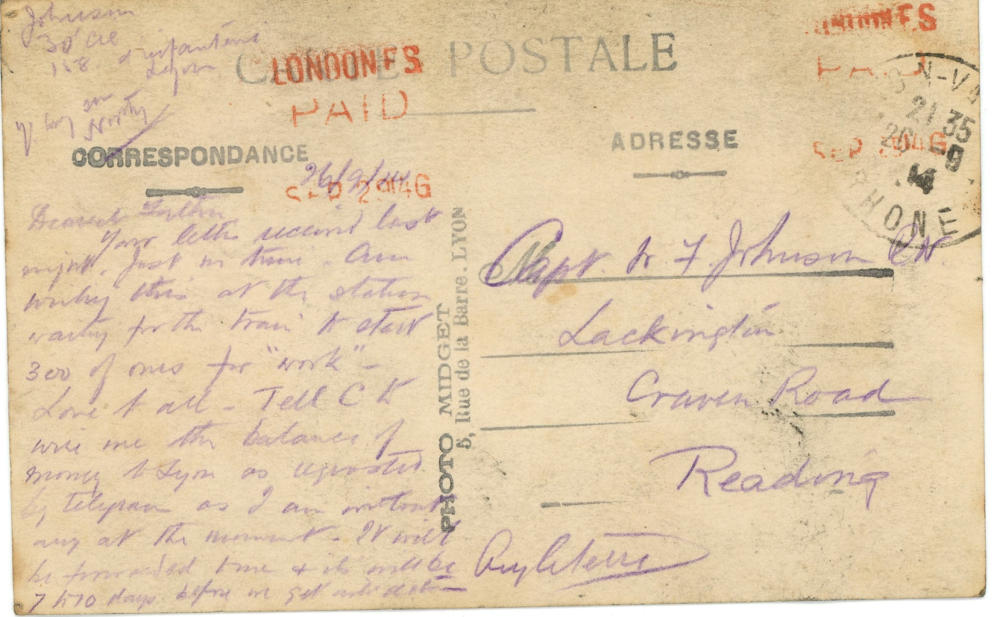 Johnson
Lyon
CARTE POSTALE
LONDON F.S
PAID
SEP 29 14 G
LONDON F.S
PAID
SEP 29 14 G
CORRESPONDANCE
ADRESSE
21 35
26 - 9
14
RHONE
26/9/14
Dearest Father
Your letter received last
night. Just in time. Am
writing this at the station
waiting for the train to start
300 of ones for "work" -
Love to all - Tell C to
wire me the balance of
money to Lyon as requested
by telegram as I am without
any at the moment - It will
be forwarded to me & it will be
7 to 10 days before we get into
PHOTO MIDGET
5, Rue de la Barre. LYON
Capt. F Johnson
Lackington
Craven Road
Reading
Angleterre